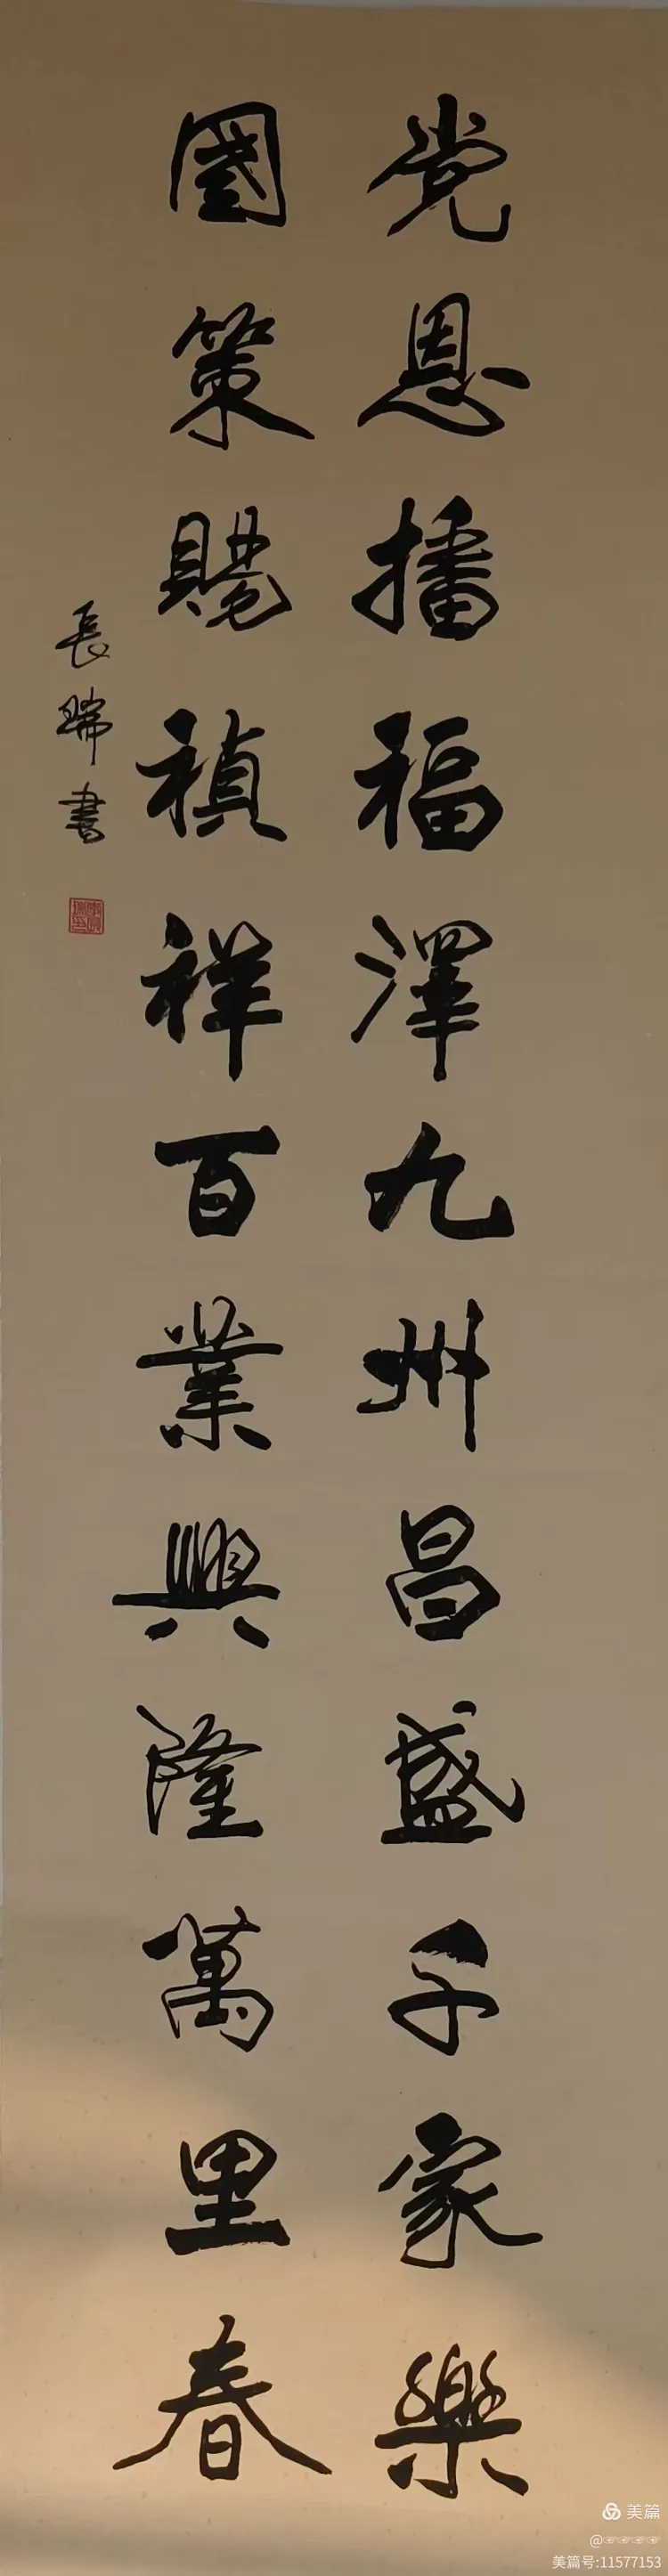 党恩播福澤九州昌盛千家樂
國策賜禎祥百業興隆萬里春
長瑞書
美篇
@
美篇号:11577153